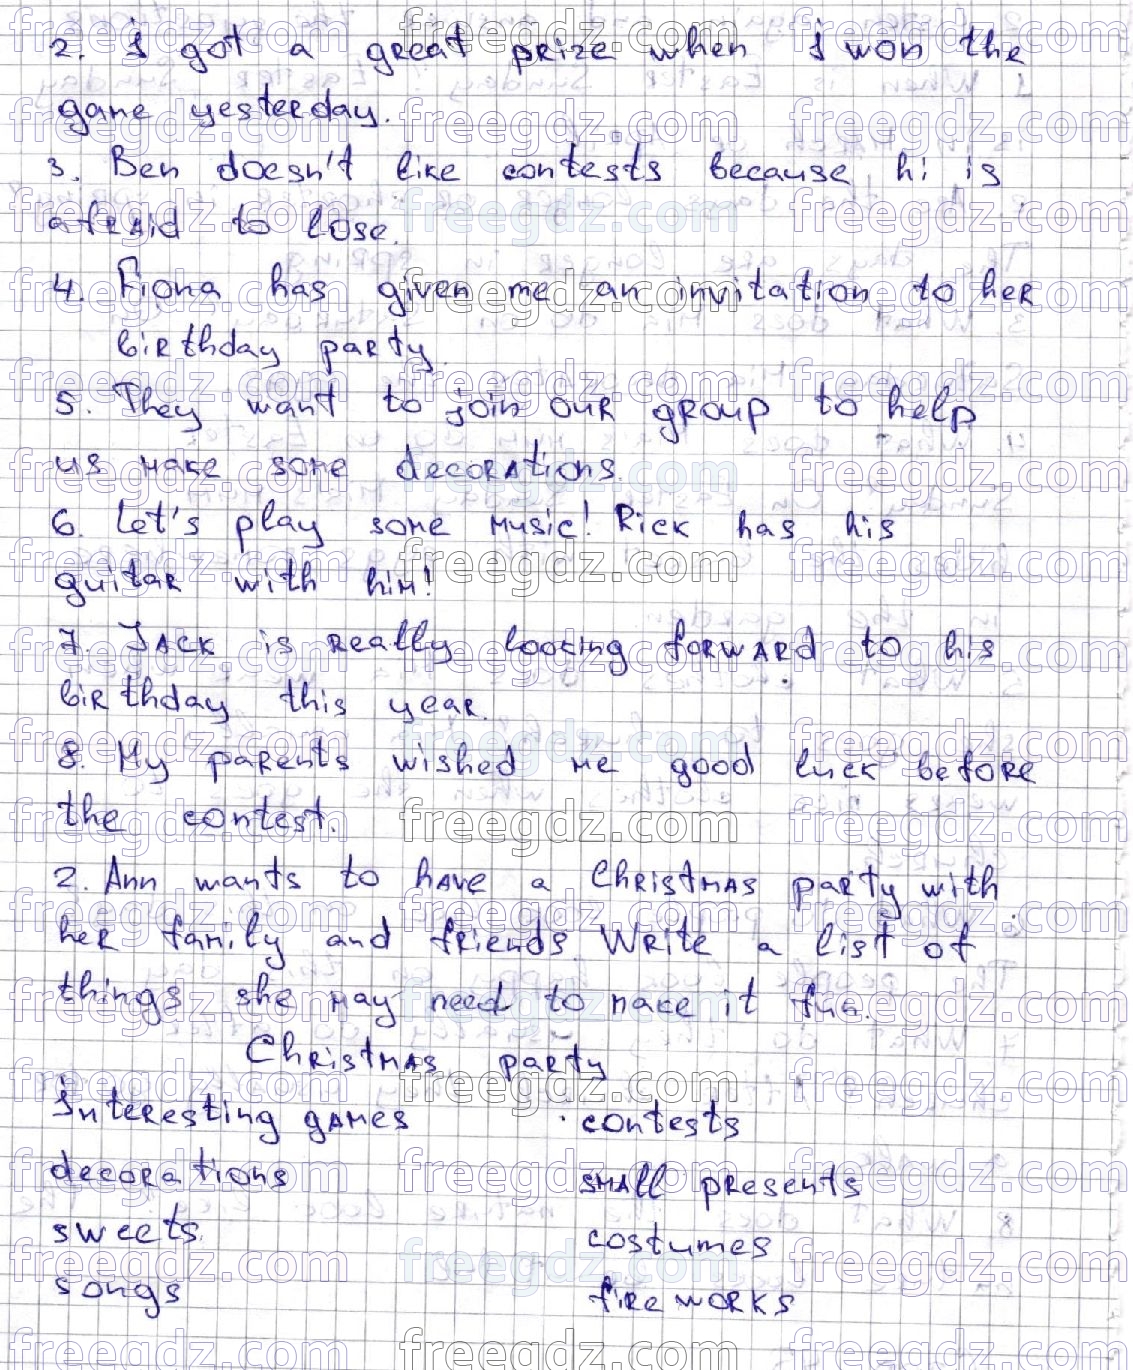 2. I got a great prize when I won the
game yesterday.
3. Ben doesn't like contests because hi is
afraid to lose.
4. Fiona has given me an invitation to her
birthday party
5. They want to join our group to help
us make some decorations.
6. Let's play some music! Rick has his
guitar with him!
7. Jack is really looking forward to his
birthday this year.
8. My parents wished me good luck before
the contest.
2. Ann wants to have a Christmas party with
her family and friends. Write a list of
things she may need to make it fun.
Christmas party
Interesting games contests
decorations small presents
sweets costumes
songs fireworks
freegdz.com